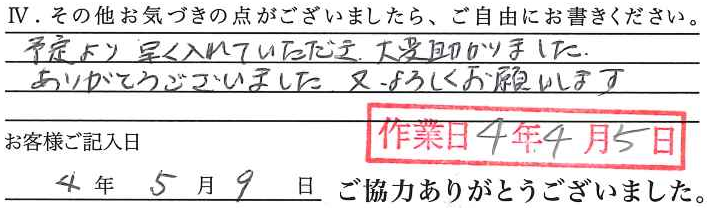 Ⅳ．その他お気づきの点がございましたら、ご自由にお書きください。
予定より早く入れていただき、大変助かりました。
ありがとうございました 又、よろしくお願いします
お客様ご記入日
作業日 4年4月5日
4年 5月 9日 ご協力ありがとうございました。